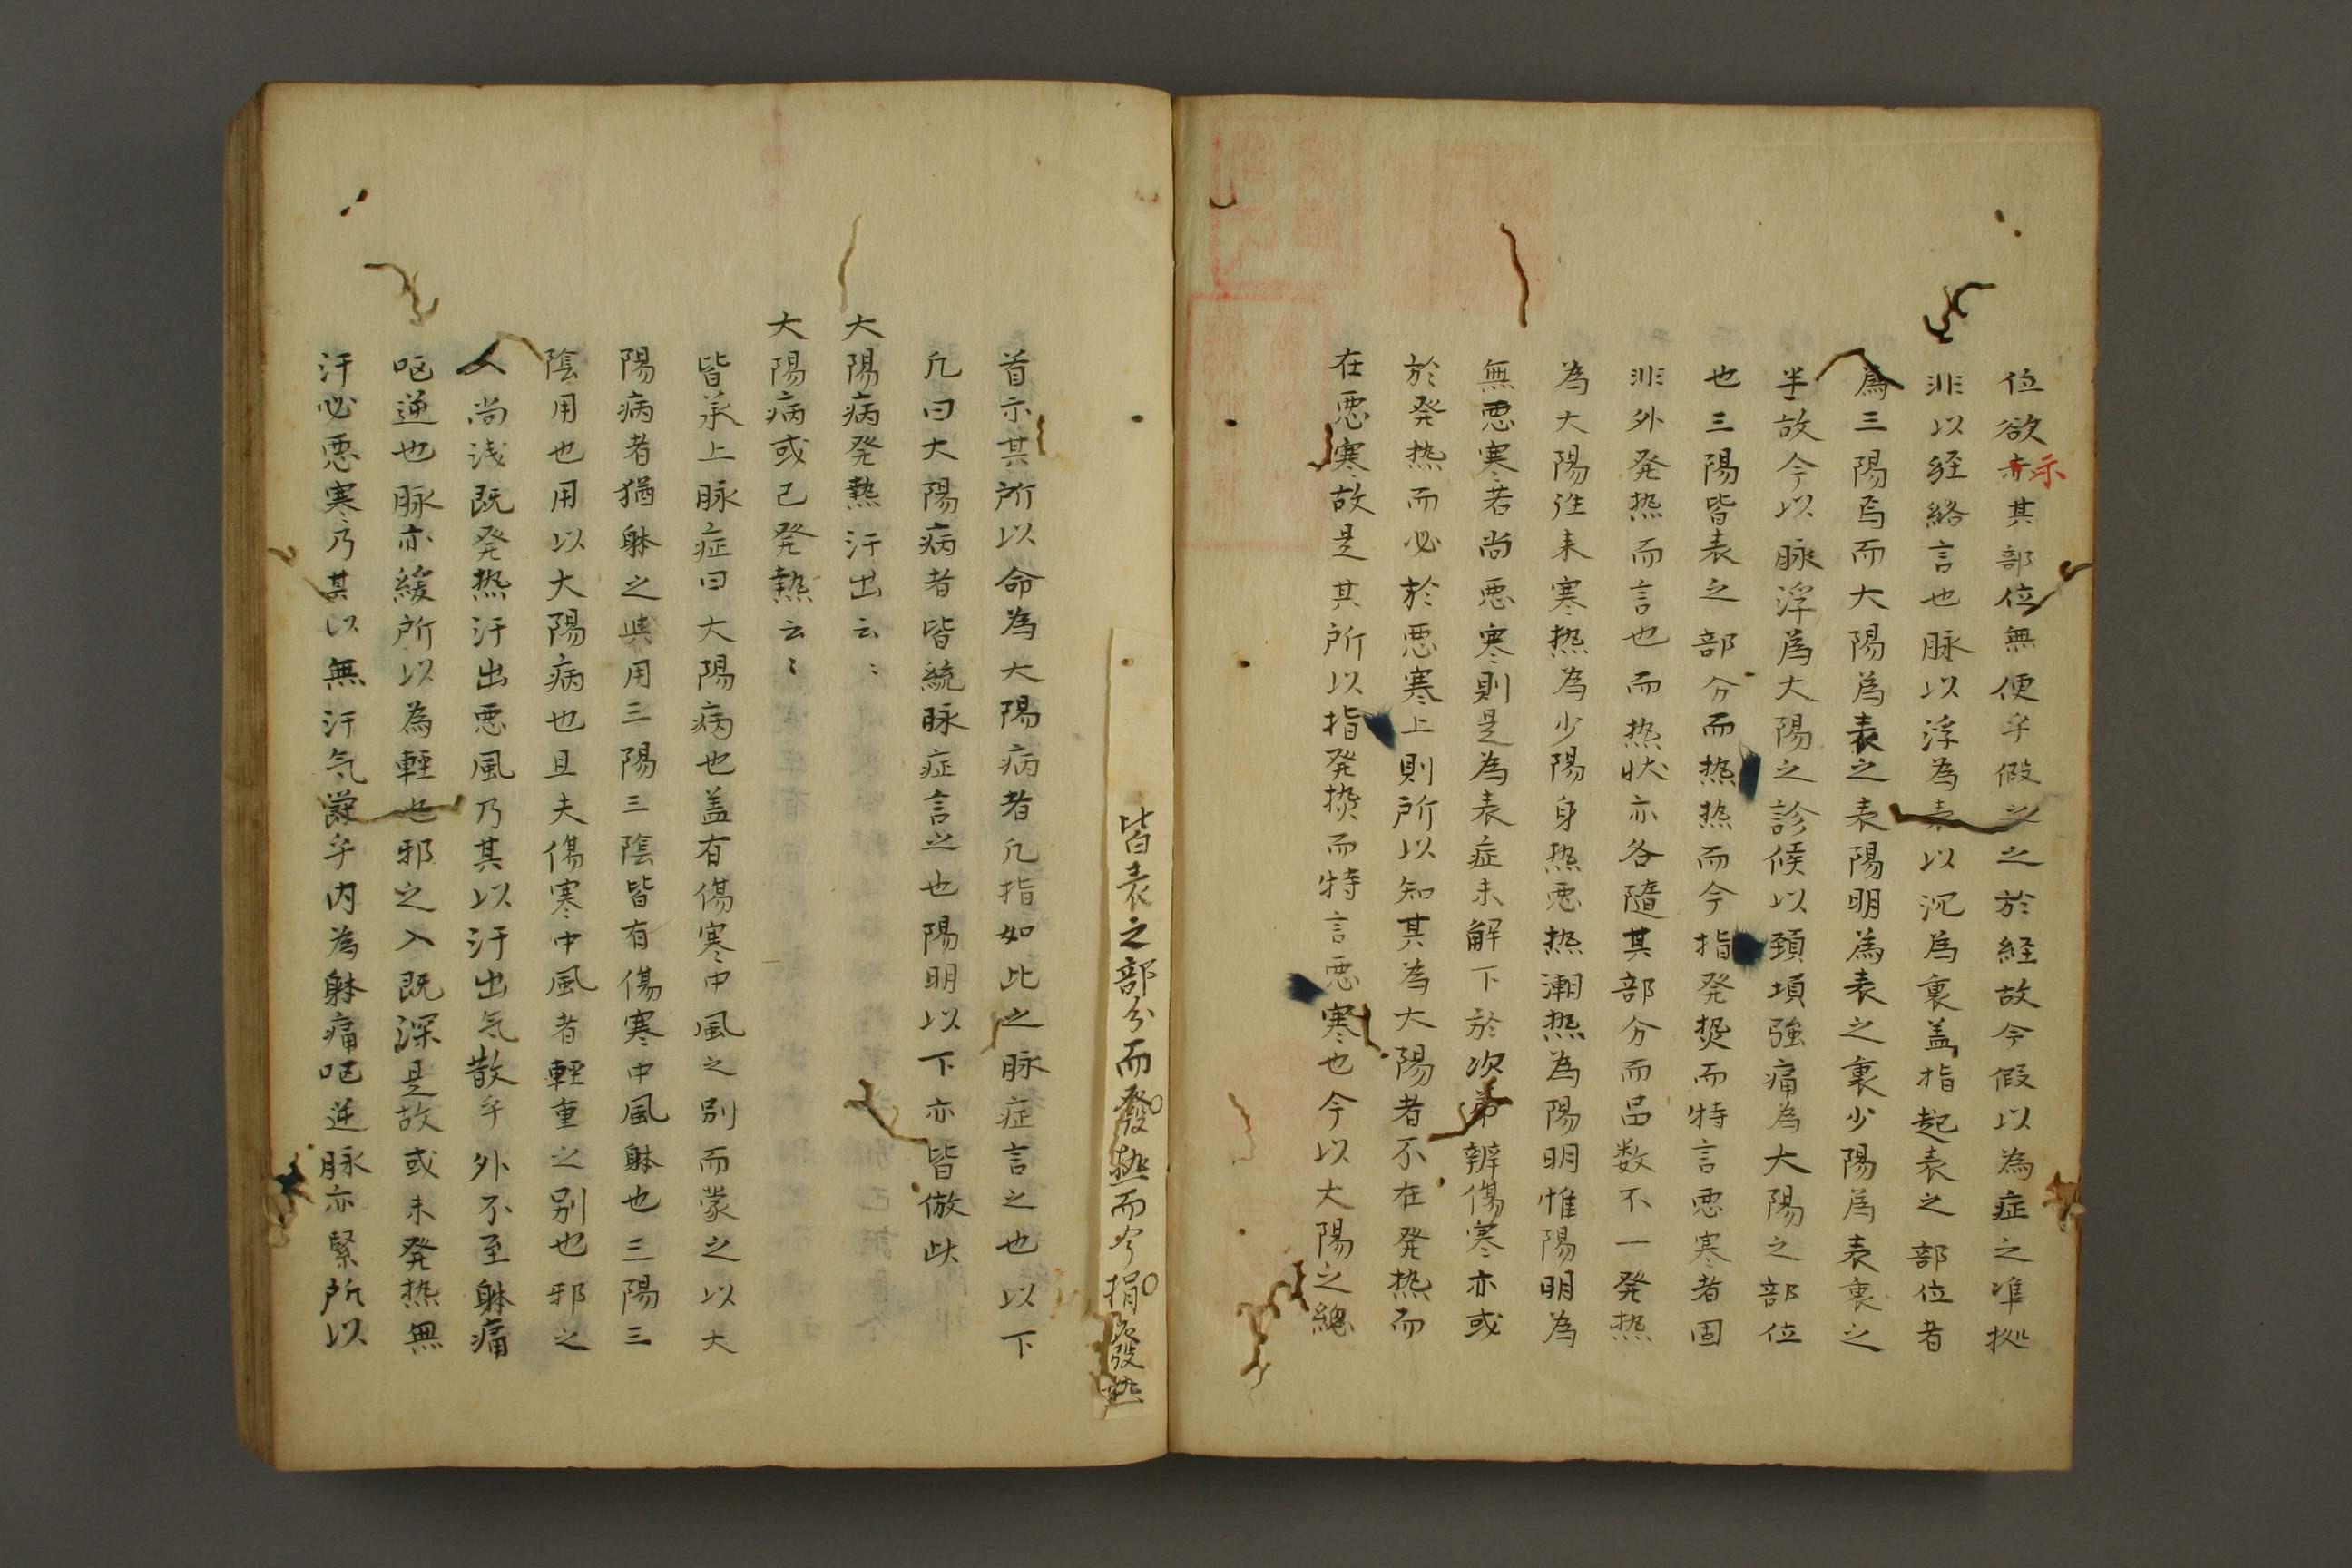 位欲赤其部位無便乎假之之於経故今假以為症之準拠
示
非以経絡言也脉以浮為表以沉為裏盖指起表之部位者
為三陽焉而大陽為表之表陽明為表之裏少陽為表裏之
半故今以脉浮為大陽之診候以頚項強痛為大陽之部位
也三陽皆表之部分而热热而今指発熒而特言悪寒者固
非外発热而言也而热状亦各隨其部分而品数不一発热
為大陽往来寒热為少陽身热悪热潮热為陽明惟陽明為
無悪寒若尚悪寒則是為表症未解下於次第辨傷寒亦或
於発热而必於悪寒上則所以知其為大陽者不在発热而
在悪寒故是其所以指発而特言悪寒也今以大陽之總
皆表之部分而發熱而今指發熱
首示其所以命為大陽病者凢指如此之脉症言之也以下
凢曰大陽病者皆統脉症言之也陽明以下亦皆倣此
大陽病発熱汗出云〻
大陽病或已発熱云〻
皆承上脉症曰大陽病也盖有傷寒中風之別而蒙之以大
陽病者猶躰之與用三陽三陰皆有傷寒中風躰也三陽三
陰用也用以大陽病也且夫傷寒中風者輕重之別也邪之
人尚浅既発热汗出悪風乃其以汗出気散乎外不至躰痛
呕逆也脉亦緩所以為輕也邪之入既深是故或未発热無
汗必悪寒乃其以無汗気欝乎内為躰痛呕逆脉亦緊所以